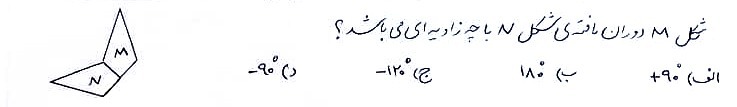 شکل M دوران یافته‌ی شکل N با چه زاویه‌ای می باشد؟
الف) +۹۰° ب) ۱۸۰° ج) -۱۲۰° د) -۹۰°
M
N